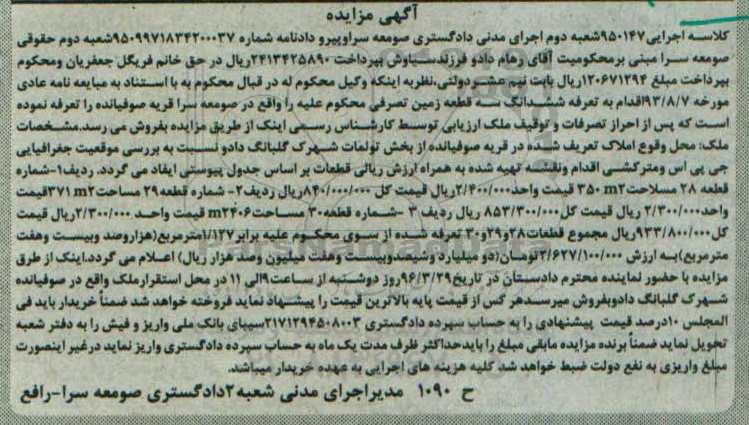 آگهی مزایده
کلاسه اجرایی۹۵۰۱۴۷شعبه دوم اجرای مدنی دادگستری صومعه سراوپیرو دادنامه شماره ۹۵۰۹۹۷۱۸۳۴۲۰۰۰۳۷شعبه دوم حقوقی
صومعه سرا مبنی برمحکومیت آقای رهام دادو فرزندسیاوش بپرداخت ۲۴۱۳۴۲۵۸۹۰ریال در حق خانم فریگل جعفریان ومحکوم
بپرداخت مبلغ ۱۲۰۶۷۱۲۹۴ریال بابت نیم عشردولتی،نظربه اینکه وکیل محکوم له در قبال محکوم به با استناد به مبایعه نامه عادی
مورخه ۹۳/۸/۷اقدام به تعرفه ششدانگ سه قطعه زمین تصرفی محکوم علیه را واقع در صومعه سرا قریه صوفیانده را تعرفه نموده
است که پس از احراز تصرفات و توقیف ملک ارزیابی توسط کارشناس رسمی اینک از طریق مزایده بفروش می رسد.مشخصات
ملک: محل وقوع املاک تعریف شده در قریه صوفیانده از بخش تولمات شهرک گلبانگ دادو نسبت به بررسی موقعیت جغرافیایی
جی پی اس ومترکشی اقدام ونقشه تهیه شده به همراه ارزش ریالی قطعات بر اساس جدول پیوستی ایفاد می گردد. ردیف۱-شماره
قطعه ۲۸ مساحت۳۵۰ m۲ قیمت واحد۲/۴۰۰/۰۰۰ریال قیمت کل ۸۴۰/۰۰۰/۰۰۰ریال ردیف۲- شماره قطعه۲۹ مساحت۳۷۱ m۲قیمت
واحد۲/۳۰۰/۰۰۰ ریال قیمت کل۸۵۳/۳۰۰/۰۰۰ ریال ردیف ۳ -شماره قطعه۳۰ مساحت۴۰۶m۲ قیمت واحد ۲/۳۰۰/۰۰۰ریال قیمت
کل۹۳۳/۸۰۰/۰۰۰ریال مجموع قطعات۲۸و۲۹و۳۰ تعرفه شده از سوی محکوم علیه برابر۱/۱۲۷مترمربع(هزاروصد وبیست وهفت
مترمربع)به ارزش ۲/۶۲۷/۱۰۰/۰۰۰تومان(دو میلیارد وشیصدوبیست وهفت میلیون وصد هزار ریال) اعلام می گردد.اینک از طرق
مزایده با حضور نماینده محترم دادستان در تاریخ۹۶/۳/۲۹روز دوشنبه از ساعت۹الی ۱۱ در محل استقرارملک واقع در صوفیانده
شهرک گلبانگ دادوبفروش میرسدهر کس از قیمت پایه بالاترین قیمت را پیشنهاد نماید فروخته خواهد شد ضمناً خریدار باید فی
المجلس ۱۰درصد قیمت پیشنهادی را به حساب سپرده دادگستری ۲۱۷۱۲۹۴۵۰۸۰۰۳سیبای بانک ملی واریز و فیش را به دفتر شعبه
تحویل نماید ضمناً برنده مزایده مابقی مبلغ را بایدحداکثر ظرف مدت یک ماه به حساب سپرده دادگستری واریز نماید درغیر اینصورت
مبلغ واریزی به نفع دولت ضبط خواهد شد کلیه هزینه های اجرایی به عهده خریدار میباشد.
ح ۱۰۹۰ مدیراجرای مدنی شعبه۲دادگستری صومعه سرا-رافع